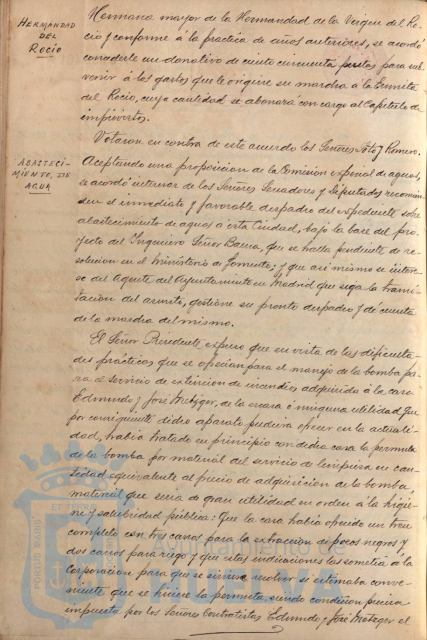 HERMANDAD
DEL
ROCIO
Hermano mayor de la Hermandad de la Virgen del Ro-
cio y conforme á la practica de años anteriores, se acordó
concederle un donativo de ciento cincuenta pesetas para sub-
venir á los gastos que le origine su marcha á la Ermita
del Rocio, cuya cantidad se abonará con cargo al Capitulo de
imprevistos.
Votaron en contra de este acuerdo los Señores Soto y Romero.
ABASTECI-
MIENTO, DE
AGUA
Aceptando una proposicion de la Comision especial de aguas,
se acordó interesar de los Señores Senadores y Diputados recomien-
den el inmediato y favorable despacho del expediente sobre
abastecimiento de aguas á esta Ciudad, bajo la base del pro-
yecto del Ingeniero Señor que se halla pendiente de re-
solucion en el Ministerio de Fomento; y que asi mismo se intere-
se del Agente del Ayuntamiento en Madrid que siga la trami-
tacion del asunto, gestione su pronto despacho y dé cuenta
de la marcha del mismo.
El Señor Presidente expuso que en vista de las dificulta-
des prácticas que se ofrecian para el manejo de la bomba pa-
ra el servicio de extincion de incendios adquirida á la casa
Edmundo y José Metzger, de la escasa ó ninguna utilidad que
por consiguiente dicho aparato pudiera ofrecer en la actuali-
dad, habia tratado en principio con dicha casa la permuta
de la bomba por material del servicio de limpieza en can-
tidad equivalente al precio de adquisicion de la bomba,
material que seria de gran utilidad en orden á la higie-
ne y salubridad pública: Que la casa habia ofrecido un tren
completo con tres carros para la extraccion de pozos negros y
dos carros para riego y que estas indicaciones las sometia á la
Corporacion para que se sirviera resolver si estimaba conve-
niente que se hiciera la permuta, siendo condicion
impuesta por los Señores Contratistas Edmundo y José Metzger el